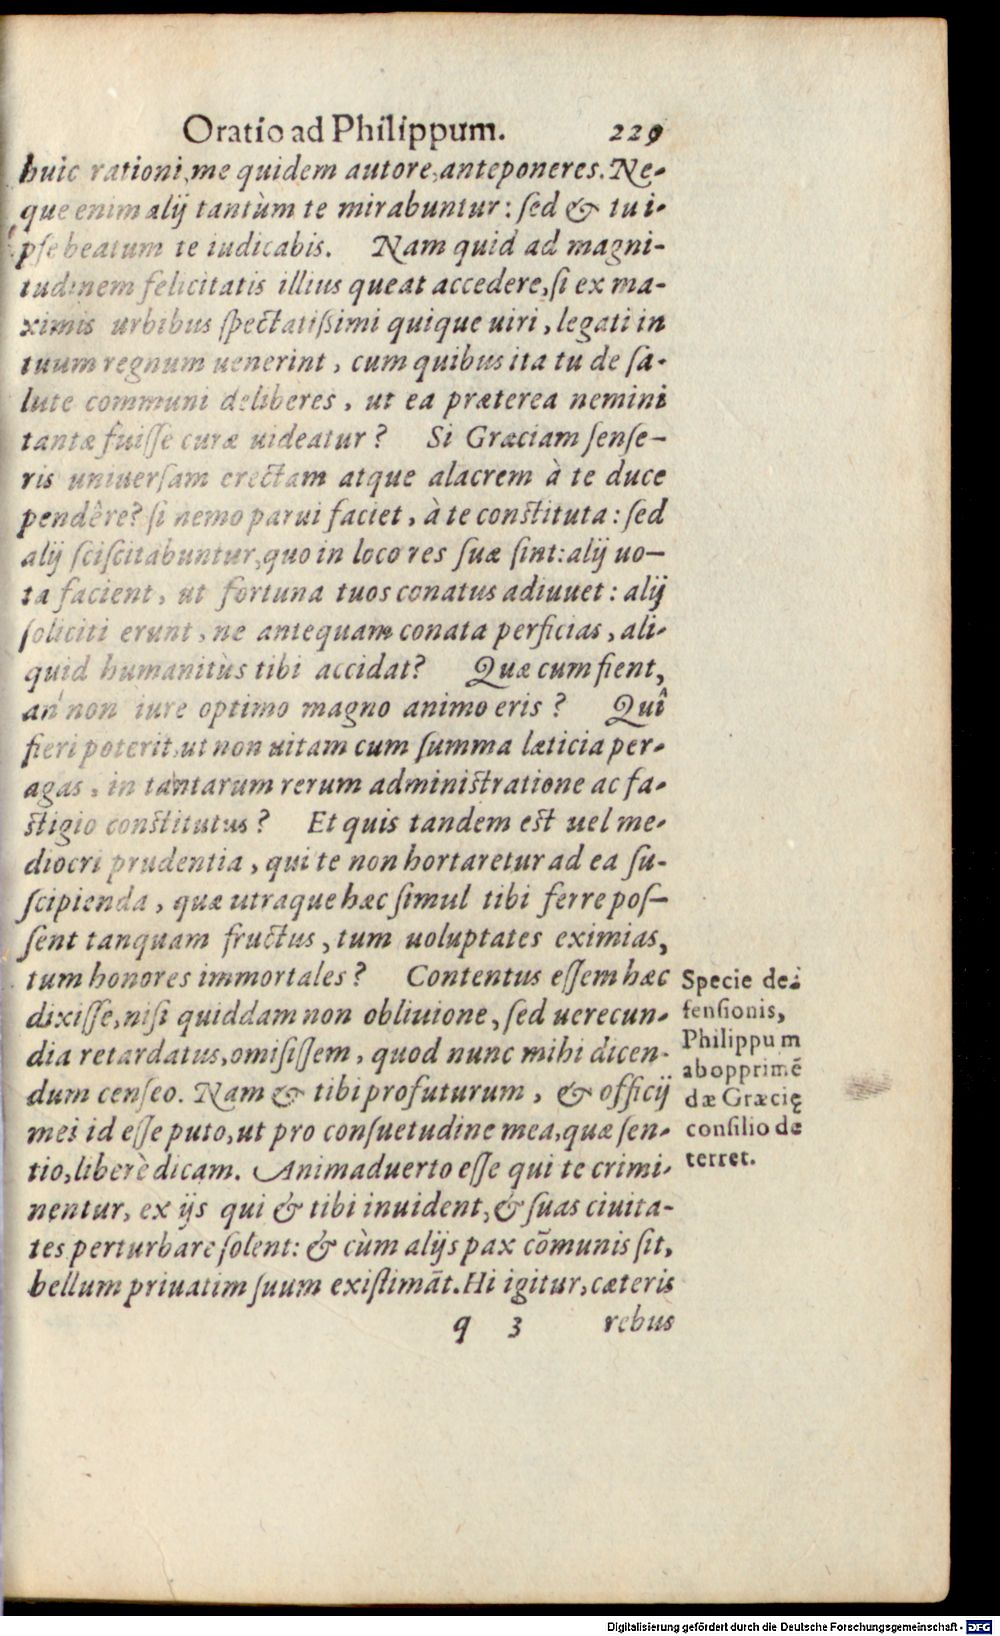 Oratio ad Philippum. 229
huic rationi, me quidem autore, anteponeres. Ne-
que enim alij tantùm te mirabuntur: sed & tu i-
pse beatum te iudicabis. Nam quid ad magni-
tudinem felicitatis illius queat accedere, si ex ma-
ximis urbibus spectatissimi quique uiri, legati in
tuum regnum uenerint, cum quibus ita tu de sa-
lute communi deliberes, ut ea præterea nemini
tantæ fuisse curæ uideatur? Si Græciam sense-
ris uniuersam erectam atque alacrem à te duce
pendêre? si nemo parui faciet, à te constituta: sed
alij sciscitabuntur, quo in loco res suæ sint: alij uo-
ta facient, ut fortuna tuos conatus adiuuet: alij
soliciti erunt, ne antequam conata perficias, ali-
quid humanitùs tibi accidat? Quæ cum fient,
an non iure optimo magno animo eris? Quî
fieri poterit, ut non uitam cum summa læticia per-
agas, in tantarum rerum administratione ac fa-
stigio constitutus? Et quis tandem est uel me-
diocri prudentia, qui te non hortaretur ad ea su-
scipienda, quæ utraque hæc simul tibi ferre pos-
sent tanquam fructus, tum uoluptates eximias,
tum honores immortales? Contentus essem hæc
dixisse, nisi quiddam non obliuione, sed uerecun-
dia retardatus, omisissem, quod nunc mihi dicen-
dum censeo. Nam & tibi profuturum, & officij
mei id esse puto, ut pro consuetudine mea, quæ sen-
tio, liberè dicam. Animaduerto esse qui te crimi-
nentur, ex ijs qui & tibi inuident, & suas ciuita-
tes perturbare solent: & cùm alijs pax cōmunis sit,
bellum priuatim suum existimāt. Hi igitur, cæteris
q 3 rebus
Specie de-
fensionis,
Philippum
ab opprimē
dæ Græcię
consilio de
terret.
Digitalisierung gefördert durch die Deutsche Forschungsgemeinschaft - DFG